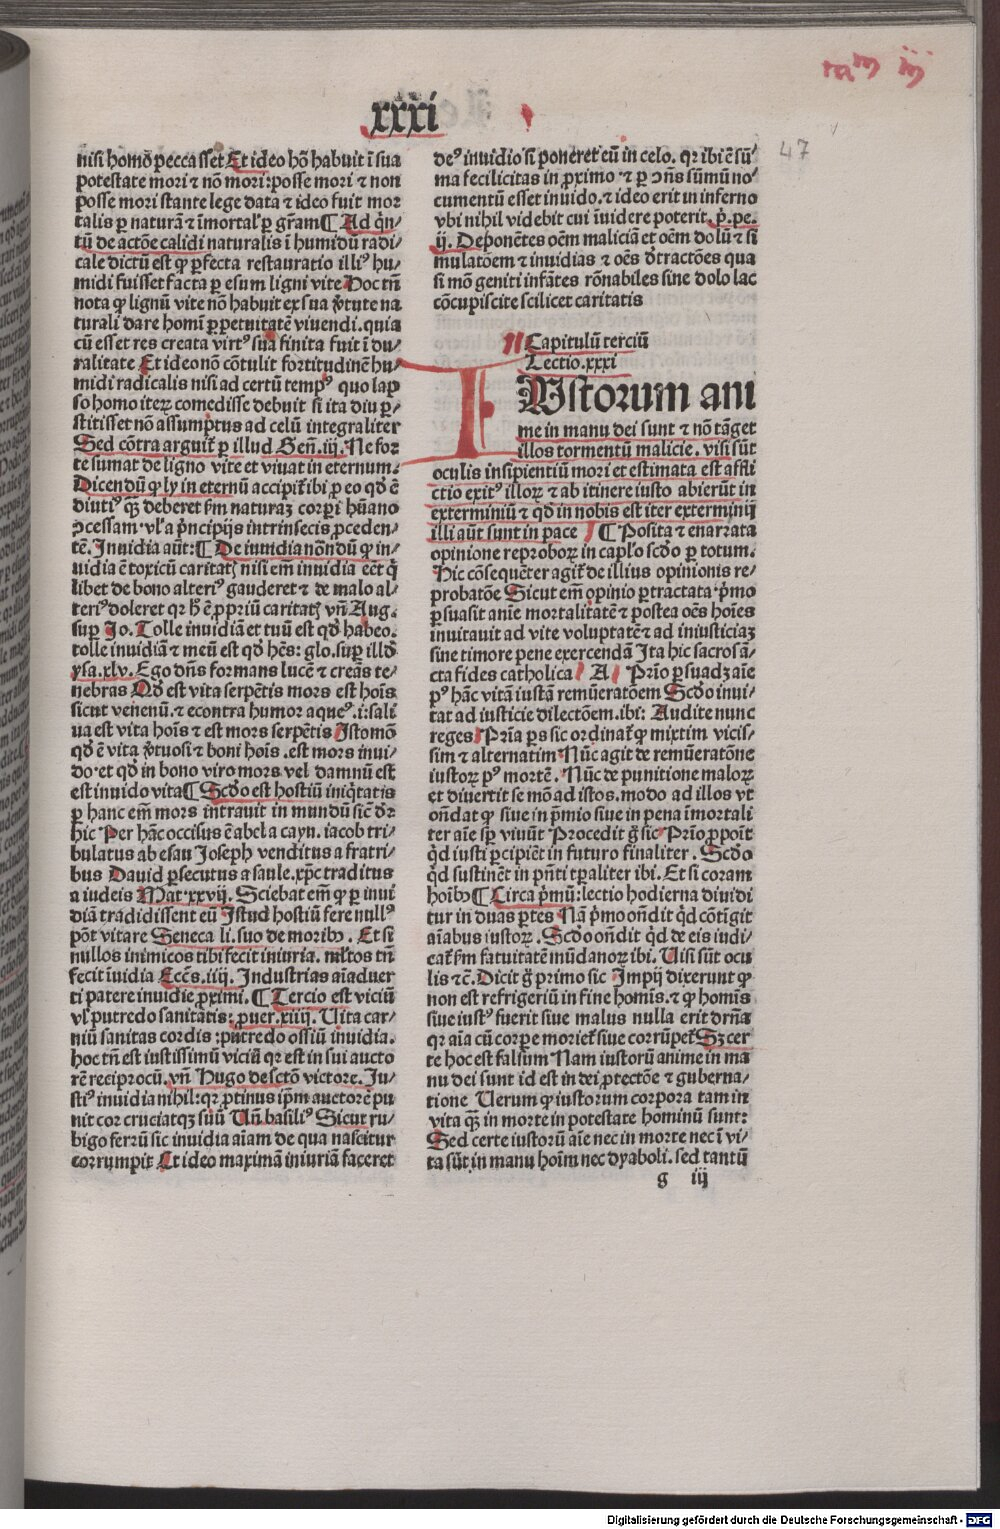 xxxi
nisi homo peccasset Et ideo hō habuit ī sua
potestate mori ⁊ nō mori: posse mori ⁊ non
posse mori stante lege data ⁊ ideo fuit mor
talis ꝑ naturā ⁊ īmortal' ꝑ gr̄am ¶ Ad q̄n/
tū de actōe calidi naturalis ī humidū radi/
cale dictū est ꝙ ꝑfecta restauratio illiꝰ hu/
midi fuisset facta ꝑ esum ligni vite Hoc tn̄
nota ꝙ lignū vite nō habuit ex sua v̓tute na
turali dare homī ꝑpetuitatē viuendi. quia
cū esset res creata virtꝰ sua finita fuit ī du/
ralitate Et ideo nō cōtulit fortitudinē hu/
midi radicalis nisi ad certū tempꝰ quo lap
so homo iteꝝ comedisse debuit si ita diu ꝑ/
stitisset nō assumptus ad celū integraliter
Sed cōtra arguit̄ ꝑ illud Gen̄. iij. Ne for
te sumat de ligno vite et viuat in eternum.
Dicendū ꝙ ly in eternū accipit̄ ibi ꝓ eo qd̓ ē
diutiꝰ qꝫ deberet ẜm naturaꝫ corꝑi hūano
ꝯcessam. vl̓ a pͥncipijs intrinsecis ꝓceden/
tē. Inuidia aūt: ¶ De inuidia nōndū ꝙ in/
uidia ē toxicū caritatꝭ nisi em̄ inuidia eēt q̄
libet de bono alteriꝰ gauderet ⁊ de malo al/
teriꝰ doleret qr h̓ ē ꝓpriū caritatꝭ vn̄ Aug.
suꝑ Jo. Tolle inuidiā et tuū est qd̓ habeo.
tolle inuidiā ⁊ meū est qd̓ hēs: glo. suꝑ illd̓
ysa. xlv. Ego dn̄s formans lucē ⁊ creās te/
nebras Qd̓ est vita serpētis mors est hoīs
sicut venenū. ⁊ econtra humor aqueꝰ. i: sali
ua est vita hoīs ⁊ est mors serpētis Isto mō
qd̓ ē vita v̓tuosi ⁊ boni hoīs. est mors inui/
do. et qd̓ in bono viro mors vel damnū est
est inuido vita ¶ Scd̓o est hostiū iniq̄tatis
ꝑ hanc em̄ mors intrauit in mundū sic̄ d̓r
hic Per hāc occisus ē abel a cayn. iacob tri/
bulatus ab esau Joseph venditus a fratri/
bus Dauid ꝑsecutus a saule. xp̄c traditus
a iudeis Mat. xxvij. Sciebat em̄ ꝙ ꝑ inui
diā tradidissent eū Istud hostiū fere nullꝰ
pōt vitare Seneca li. suo de moribꝰ. Et si
nullos inimicos tibi fecit iniuria. ml̓tos tn̄
fecit īuidia Ecc̄s. iiij. Industrias aīaduer
ti patere inuidie ꝓximi. ¶ Tercio est viciū
vl̓ putredo sanitatis: ꝓuer. xiiij. Vita car/
niū sanitas cordis: putredo ossiū inuidia.
hoc tn̄ est iustissimū viciū qr est in sui aucto
rē reciprocū. vn̄ Hugo de sctō victore. Ju/
stiꝰ inuidia nihil: qr ꝓtinus ip̄m auctorē pu
nit cor cruciatqꝫ suū Vn̄. basiliꝰ Sicut ru/
bigo ferrū sic inuidia aīam de qua nascitur
corrumpit Et ideo maximā iniuriā faceret
deꝰ inuidio si poneret eū in celo. qr ibi ē sū/
ma fecilicitas in ꝓximo ⁊ ꝑ ꝯn̄s sūmū no/
cumentū esset inuido. ⁊ ideo erit in inferno
vbi nihil videbit cui īuidere poterit. p̄. pe.
ij. Deponētes oēm maliciā et oēm dolū ⁊ si
mulatōem ⁊ inuidias ⁊ oēs d̓tractōes qua
si mō geniti infātes rōnabiles sine dolo lac
cōcupiscite scilicet caritatis
Capitulū terciū
Lectio. xxxi
IVstorum ani
me in manu dei sunt ⁊ nō tāget
illos tormentū malicie. visi sūt
oculis insipientiū mori et estimata est affli
ctio exitꝰ illoꝝ ⁊ ab itinere iusto abierūt in
exterminiū ⁊ qd̓ in nobis est iter exterminij
illi aūt sunt in pace ¶ Posita ⁊ enarrata
opinione reproboꝝ in capl̓o scd̓o ꝑ totum.
Hic cōsequēter agit̄ de illius opinionis re/
probatōe Sicut em̄ opinio ꝑtractata pͥmo
ꝑsuasit anīe mortalitatē ⁊ postea oēs hoīes
inuitauit ad vite voluptatē ⁊ ad iniusticiaꝫ
sine timore pene exercendā Ita hic sacrosā/
cta fides catholica A Prīo ꝑsuadꝫ aīe
pꝰ hāc vitā iustā remūeratōem Scd̓o inui/
tat ad iusticie dilectōem. ibi: Audite nunc
reges Prīa ꝑs sic ordinat̄ ꝙ mixtim vicis/
sim ⁊ alternatim Nūc agit de remūeratōne
iustoꝝ pꝰ mortē. Nūc de punitione maloꝝ
et diuertit se mō ad istos. modo ad illos vt
on̄dat ꝙ siue in pͥmio siue in pena īmortali
ter aīe sꝑ viuūt Procedit g̓ sic Prīo ꝓpōit
qd̓ iusti ꝑcipiēt in futuro finaliter. Scd̓o
qd̓ sustinēt in pn̄ti tꝑaliter ibi. Et si coram
hoībꝰ ¶ Circa pͥmū: lectio hodierna diuidi
tur in duas ꝑtes Nā pͥmo on̄dit qd̓ cōtīgit
aīabus iustoꝝ. Scd̓o on̄dit qd̓ de eis iudi/
cat̄ ẜm fatuitatē mūdanoꝝ ibi. Visi sūt ocu
lis ⁊c̄. Dicit g̓ primo sic Impij dixerunt ꝙ
non est refrigeriū in fine homīs. ⁊ ꝙ homīs
siue iustꝰ fuerit siue malus nulla erit dr̄na
qr aīa cū corꝑe moriet̄ siue corrūpet̄ Sꝫ cer
te hoc est falsum Nam iustorū anime in ma
nu dei sunt id est in dei ꝓtectōe ⁊ guberna/
tione Verum ꝙ iustorum corpora tam in
vita qꝫ in morte in potestate hominū sunt:
Sed certe iustorū aīe nec in morte nec ī vi/
ta sūt in manu hoīm nec dyaboli. sed tantū
g iij
47
Digitalisierung gefördert durch die Deutsche Forschungsgemeinschaft - DFG